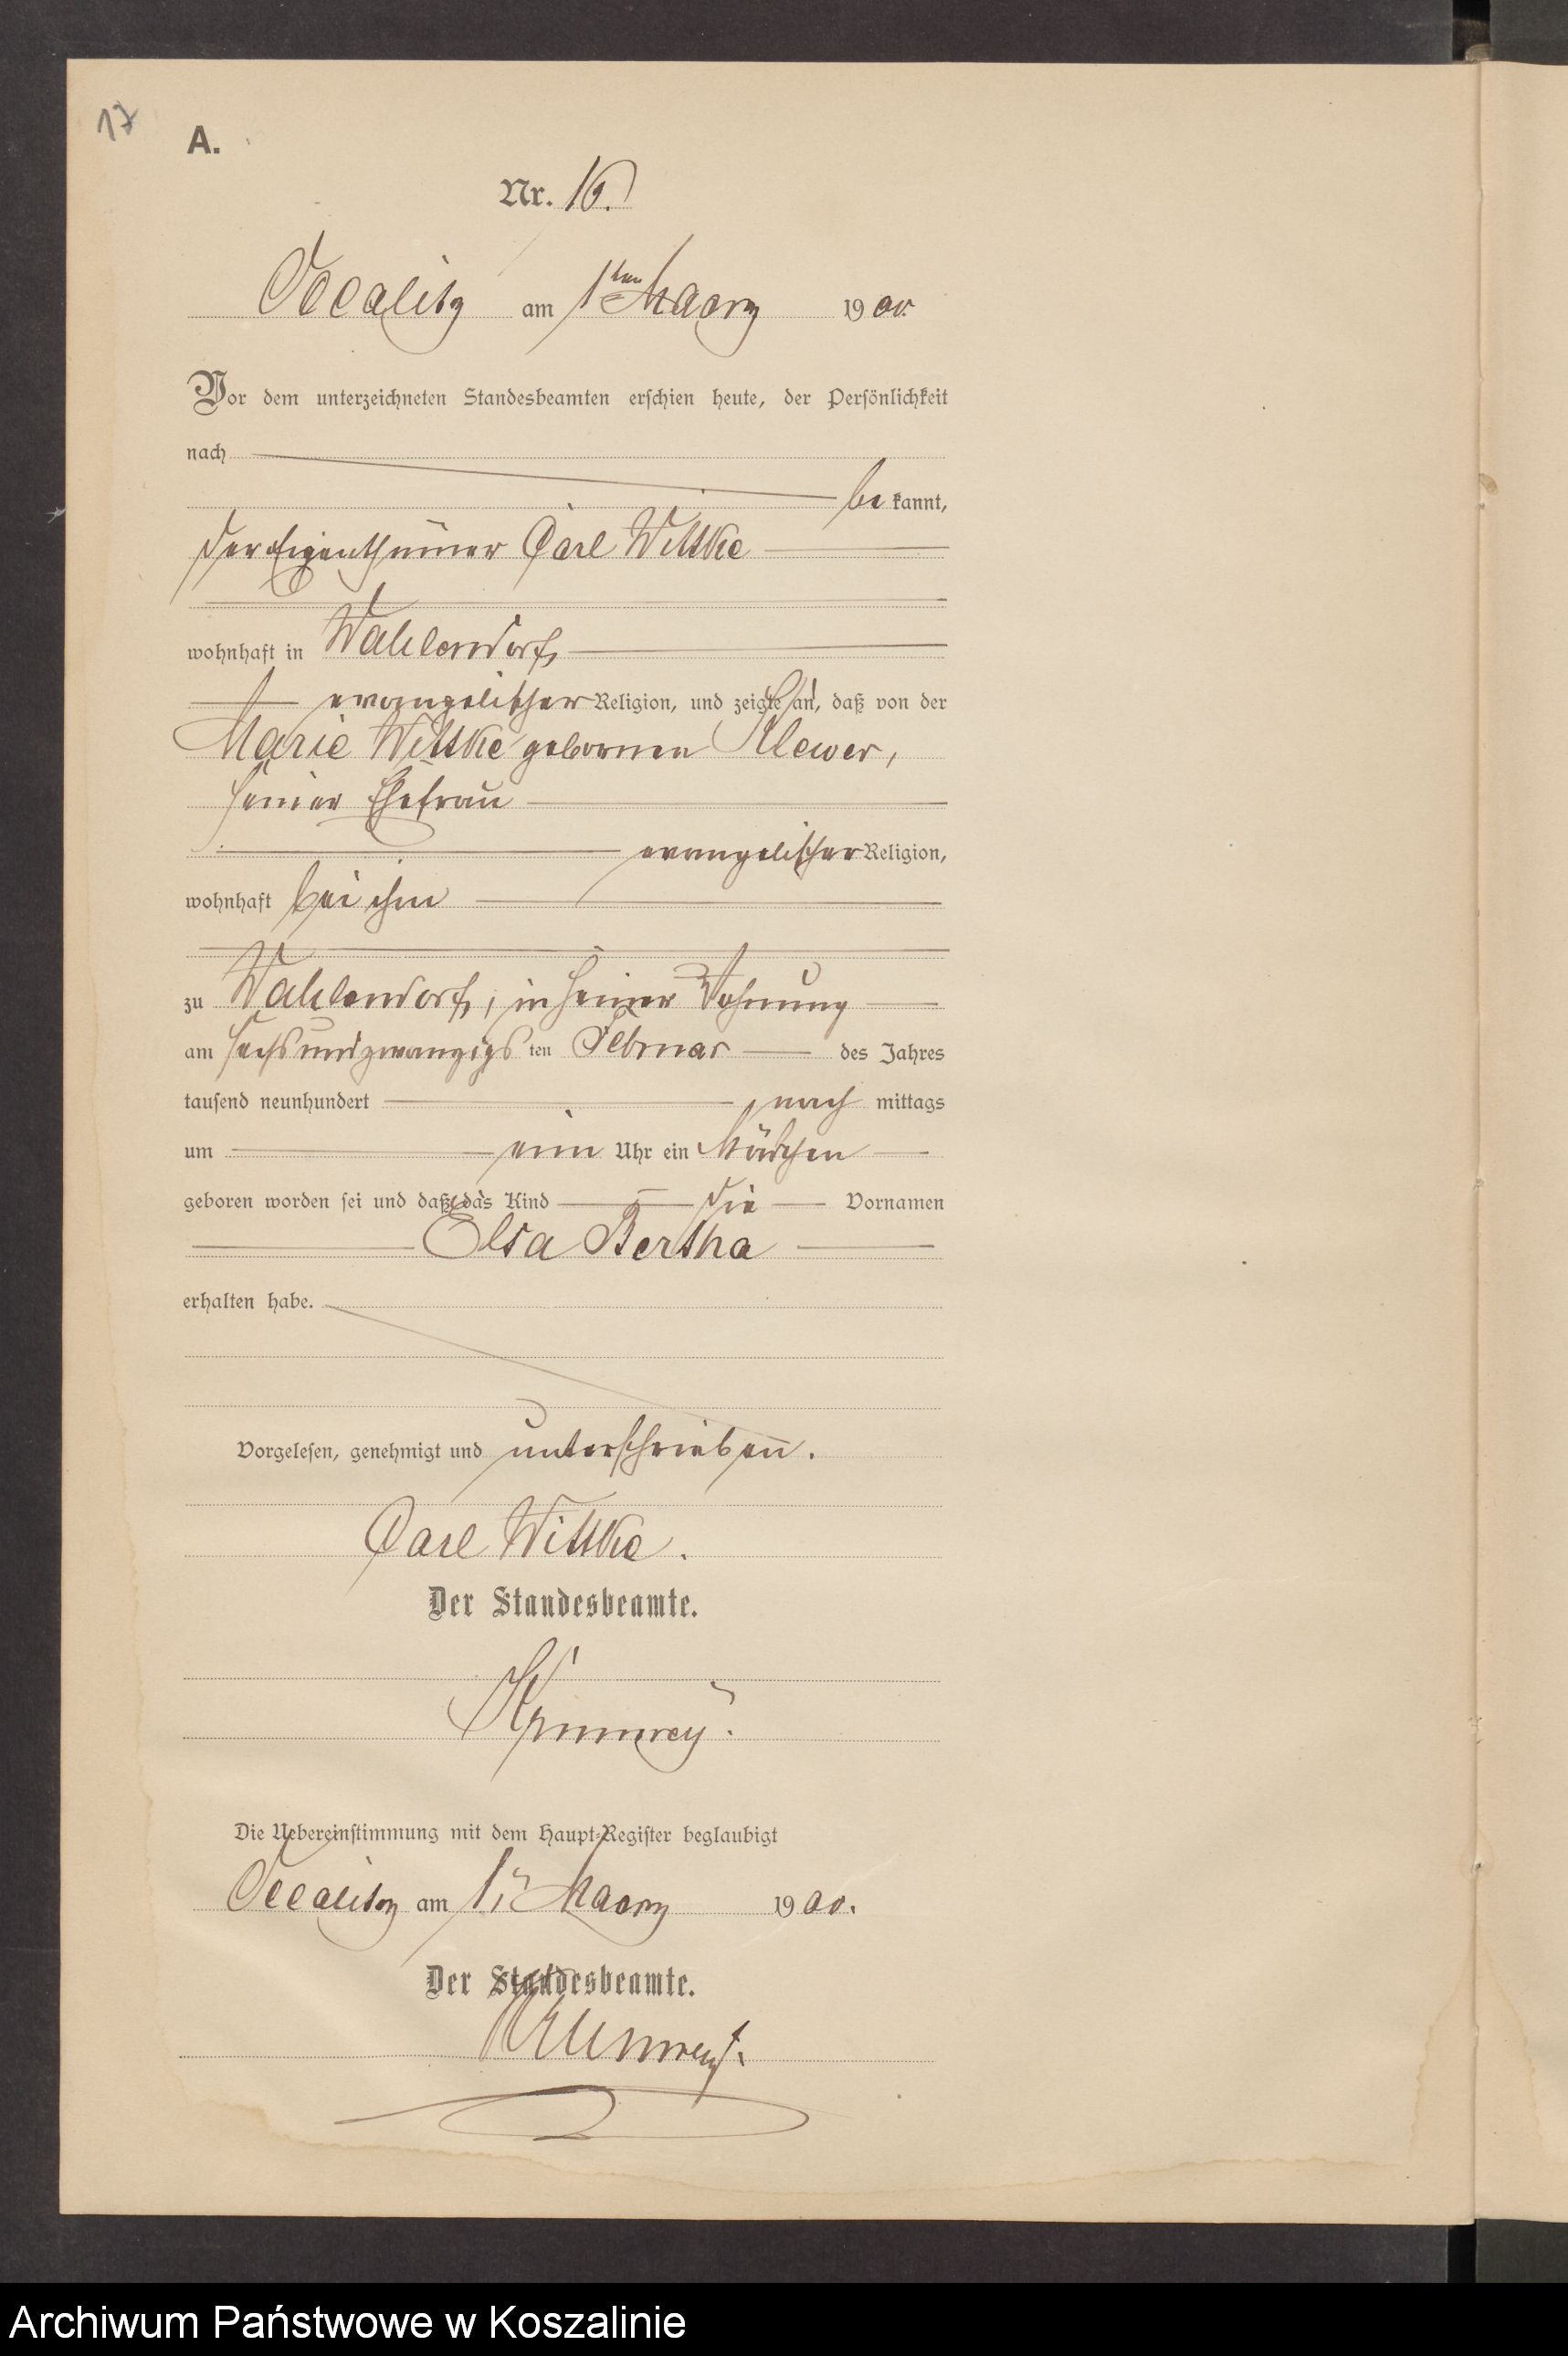 17
A.
Nr. 16.
Occalitz am 1ten Maerz 1900.
Vor dem unterzeichneten Standesbeamten erschien heute, der Persönlichkeit
nach
be kannt,
der Eigenthümer Carl Wittke
wohnhaft in Wahlendorf,
evangelischer Religion, und zeigte an, daß von der
Marie Wittke gebornen Klewer,
seiner Ehefrau
evangelischer Religion,
wohnhaft bei ihm
zu Wahlendorf, in seiner Wohnung
am sechsundzwanzigsten Februar des Jahres
tausend neunhundert nach mittags
um ein Uhr ein Mädchen
geboren worden sei und daß das Kind die Vornamen
Elsa Bertha
erhalten habe.
Vorgelesen, genehmigt und unterschrieben.
Carl Wittke.
Der Standesbeamte.
Die Uebereinstimmung mit dem Haupt-Register beglaubigt
Occalitz am 1. Maerz 1900.
Der Standesbeamte.
Archiwum Państwowe w Koszalinie